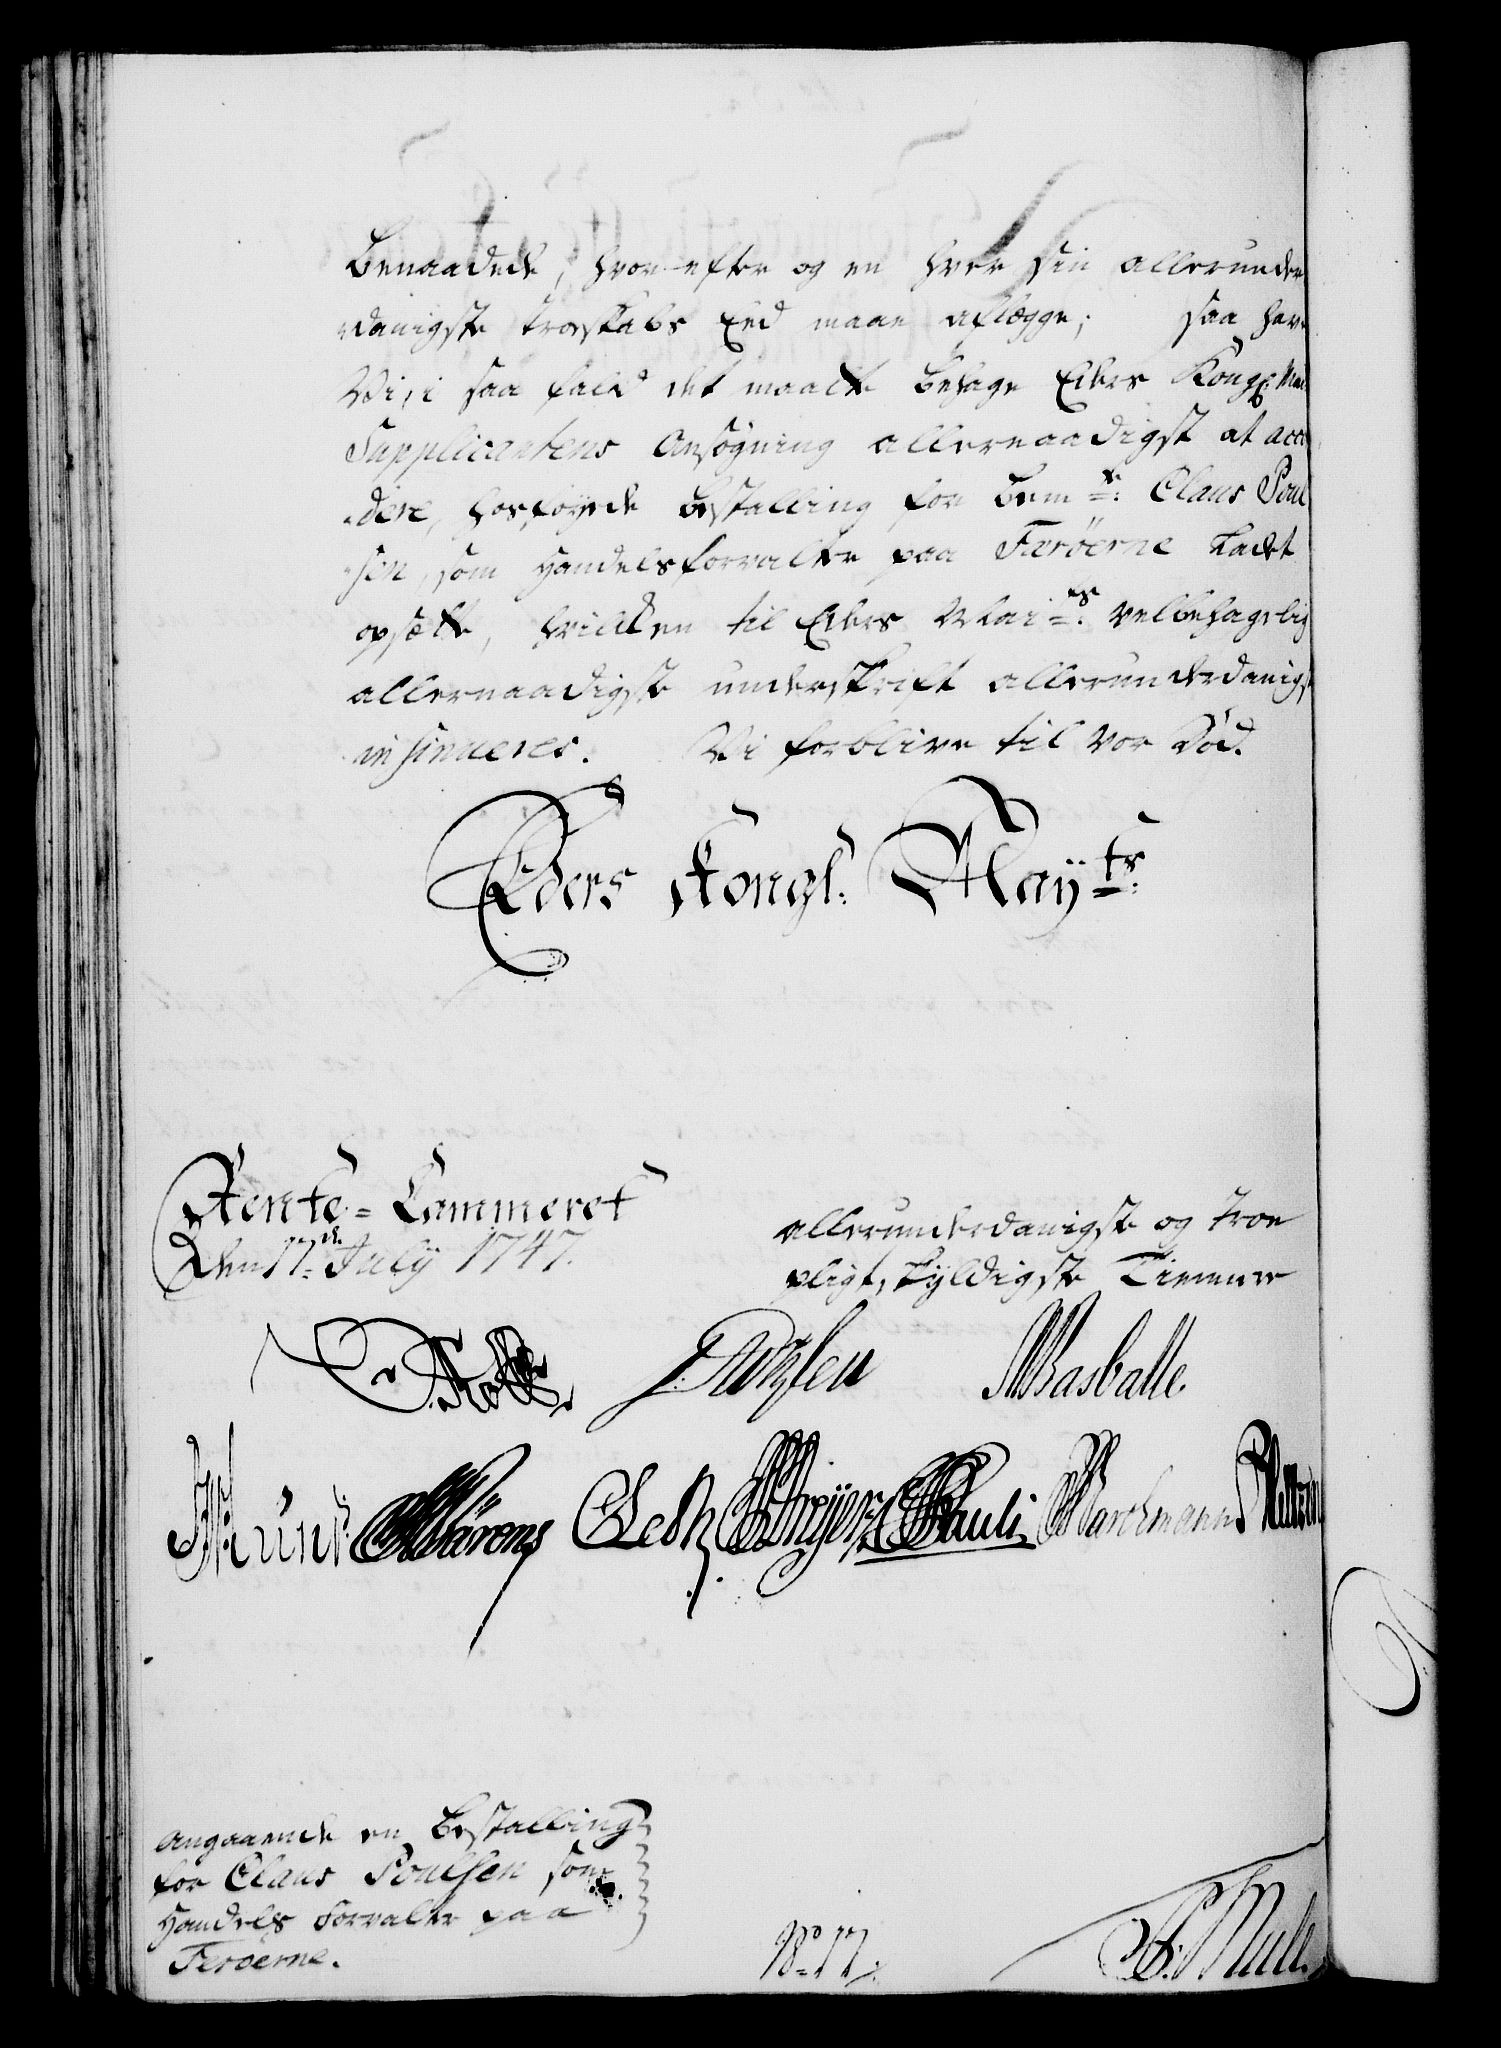 Benaadede, hvor efter og en hver sin allerunder
danigste troskabs Eed maae aflægge; saa have
Vi, i saa fald det maatte behage Eders Kongl: May
Supplicantens Ansøgning allernaadigst at acco
dere, hosføyede Bestalling for bem.te: Claus Poul
sen, som Handelsforvalter paa Færöerne ladet
opsætte, hvilken til Eders Mai.ts: velbehagelig
allernaadigste underskrift allerunderdanigst
insinueres. Vi forblive til vor Død.
Eders Kongl: Mayts:
Rente-Cammeret
Den 17de July 1747.
allerunderdanigste og troe
pligtskyldigste Tiennere
Wasballe
Pauli Marchmann
Angaaende en Bestalling
for Claus Poulsen som
Handels Forvalter paa
Feröerne.
No 17.